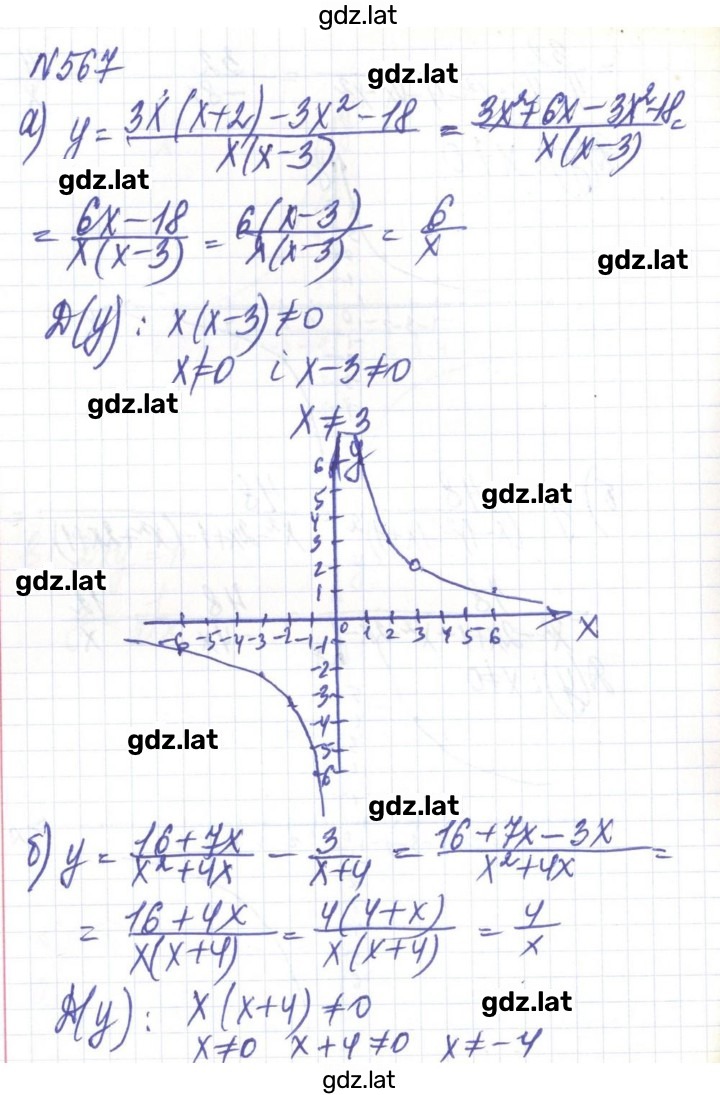 gdz.lat
N567
gdz.lat
а) y = (3x(x+2) - 3x² - 18)/(x(x-3)) = (3x²+6x-3x²-18)/(x(x-3)) =
gdz.lat
= (6x-18)/(x(x-3)) = (6(x-3))/(x(x-3)) = 6/x
gdz.lat
Д(y): x(x-3)≠0
x≠0 і x-3≠0
gdz.lat
x≠3
y
6
5
4
3
2
1
gdz.lat
gdz.lat
-6 -5 -4 -3 -2 -1 0 1 2 3 4 5 6 x
-1
-2
-3
-4
-5
-6
gdz.lat
gdz.lat
б) y = (16+7x)/(x²+4x) - 3/(x+4) = (16+7x-3x)/(x²+4x) =
= (16+4x)/(x(x+4)) = (4(4+x))/(x(x+4)) = 4/x
Д(y): x(x+4)≠0
gdz.lat
x≠0 x+4≠0 x≠-4
gdz.lat